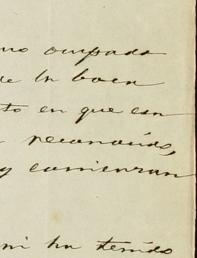 ocupado
de la buena
to en que con
reconocido,
y comienzan
ni ha tenido